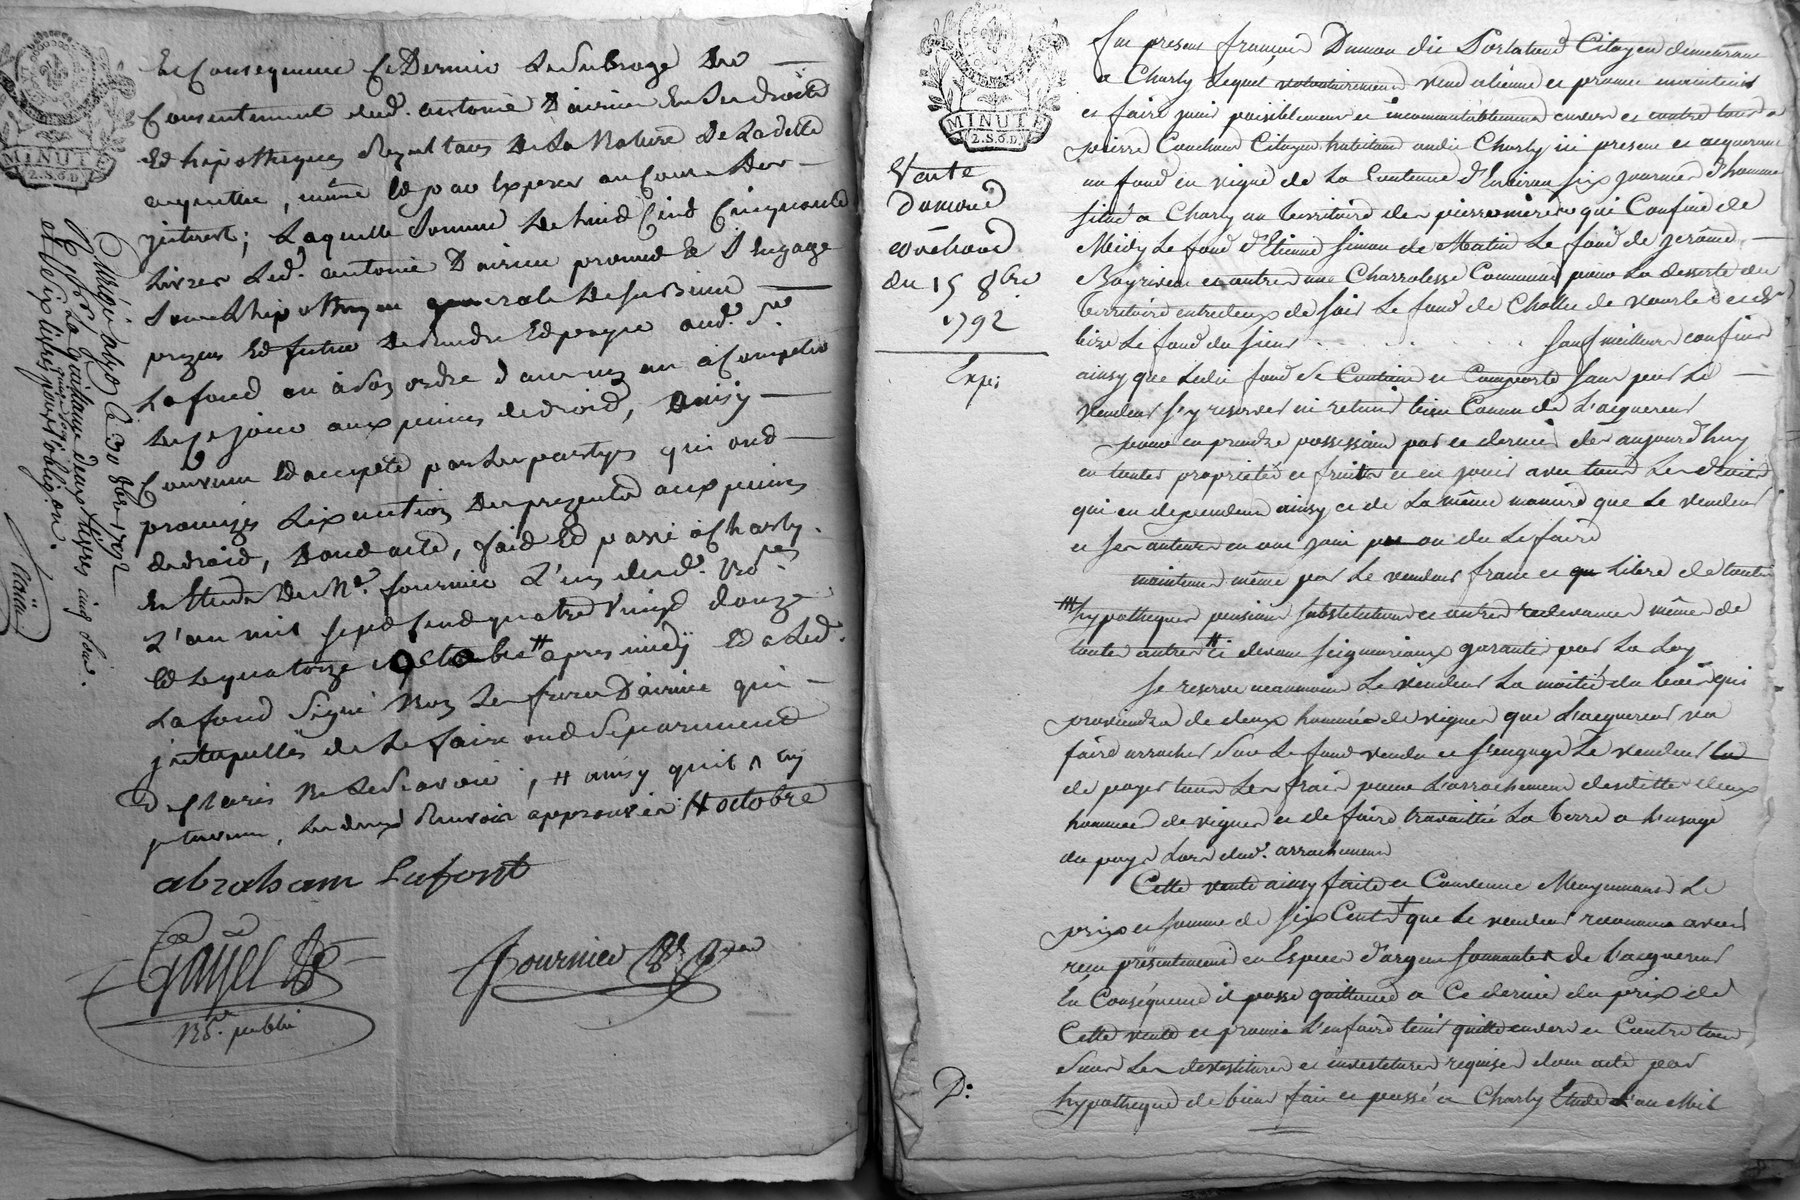 MINUTE
2.S.6.D
En Consequence Ce Dernier Le Subroge Du
Consentement dud. antoine Dairieu En Ses droits
Ed hipotheques Rezultans De La Nature De Ladette
acquittée, même Ed pour Exposer au Cours Des
jnterest; Laquelle Somme De huid Cend Cinquante
Livres Led. antoine Dairieu promed Ed S'Engage
Sous L'hipotheque generale De Ses Biens
prezens Ed futurs De Rendre Ed payer aud. Sr.
Lafond ou à Son ordre d'au en un an à Compter
De Ce jour aux peines de droid, Ainsy
Convenu Ed accepté par Les partyes qui ond
promizes L'execution Des prezentes aux peines
de droid, Dond acte, faid Ed passé à Charly
En Etude De Me. fournier L'un desd. Nres.
L'an mil sepd Cend quatre Vingd douze
Ed Le quatorze octobre # apres midÿ Ed a Led.
Lafond Signé Non Les freres Dairieu qui
jnterpellés de Le faire ond Separement
Declaré Ne Le Scavoir, # ainsy quil
jntervenu, Les deux Renvois approuvés # octobre
abraham Lafont
Gayet
Nre. public
Fournier
Enregré à Lyon Le 30 8bre 1792
Reçu La quittance deux livres cinq sous
et Six livres pour l'obligaon.
MINUTE
2.S.6.D
Vente
Dumond
Couchoud
du 15 8bre
1792
Expé
Fut present françois Dumon dit Portateur Citoyen demeurant
a Charly lequel volontairement vend aliene et promet maintenir
et faire jouir paisiblement et incommutablement envers et contre tous a
pierre Couchoud Citoyen habitant audit Charly ici present et acquereur
un fond en vigne de La Contenue d'Environ six journées d'homme
situé a Charly au territoire des pierres qui Confine de
Midy Le fond d'Etienne Simon de Matin Le fond de jerôme
Boyriven et autres une Charralesse Commune pour La desserte du
territoire entredeux de soir Le fond de Chollet de vourles et de
bize Le fond du sieur . . . . . . . . . sauf meilleurs confins
ainsy que Ledit fond Se Contient et Comporte sans par Le
vendeur s'y reserver ni retenir bien Connu de L'acquereur
pour en prendre possession par ce dernier dès aujourd'huy
en toute proprieté et fruits et en jouir avec tous Les droits
qui en dependent ainsy et de La même maniere que Le vendeur
et ses auteurs en ont joui pu ou du Le faire
maintenu même par Le vendeur franc et qu Libre de toutes
hypotheques pensions substitutions et autres redevances même de
toutes autres # ci devant seigneuriaux garantis par La Loy
Se reserve neanmoins Le vendeur La moitié du bois qui
proviendra de deux hommées de vignes que L'acquereur va
faire arracher sur Le fond vendu et s'engage Le vendeur
de payer tous Les frais pour L'arrachement desdittes deux
hommées de vignes et de faire travailler La terre a L'usage
du pays Lors dud. arrachement
Cette vente ainsy faite et Convenue Moyennant Le
prix et somme de six Cents # que Le vendeur reconnoit avoir
recu presentement en Especes d'argent sonnantes de L'acquereur
En Conséquence il passe quittance a Ce dernier du prix de
Cette vente et promet L'en faire tenir quitte envers et Contre tous
Sous Les devestitures et investitures requises dont acte par
hypotheque de biens fait et passé a Charly Etude L'an Mil
D: